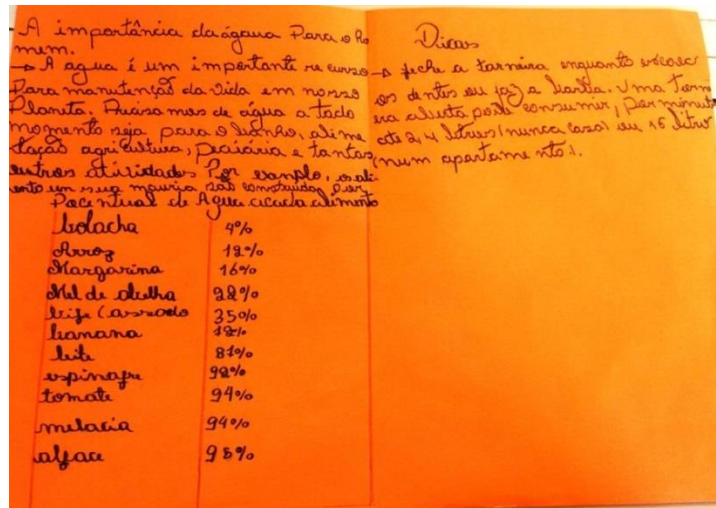 A importância da ágaua Para o ho
mem.
→ A agua é um importante recurso
Para manutenção da Vida em nosso
Planeta. Precisamos de água a todo
momento seja para o banho, alime
tação agricultura, Pecuária e tantas
outras atividades Por exanplo, os ali
ento um sua mauria são construídos Por
Pocentual de Agua acada alimento
bolacha 4%
Arroz 12%
Margarina 16%
Mel de abelha 22%
bife (assado 35%
banana 12%
leite 81%
espinafre 92%
tomate 94%
melacia 94%
alface 95%
Dicas
→ feche a torneira enquanto escovar
os dentes ou faz a barba. Uma Torn
era aberta pode consumir, Por minuto
até 2,4 litros (nunca casa) ou 16 litro
(num apartamento).